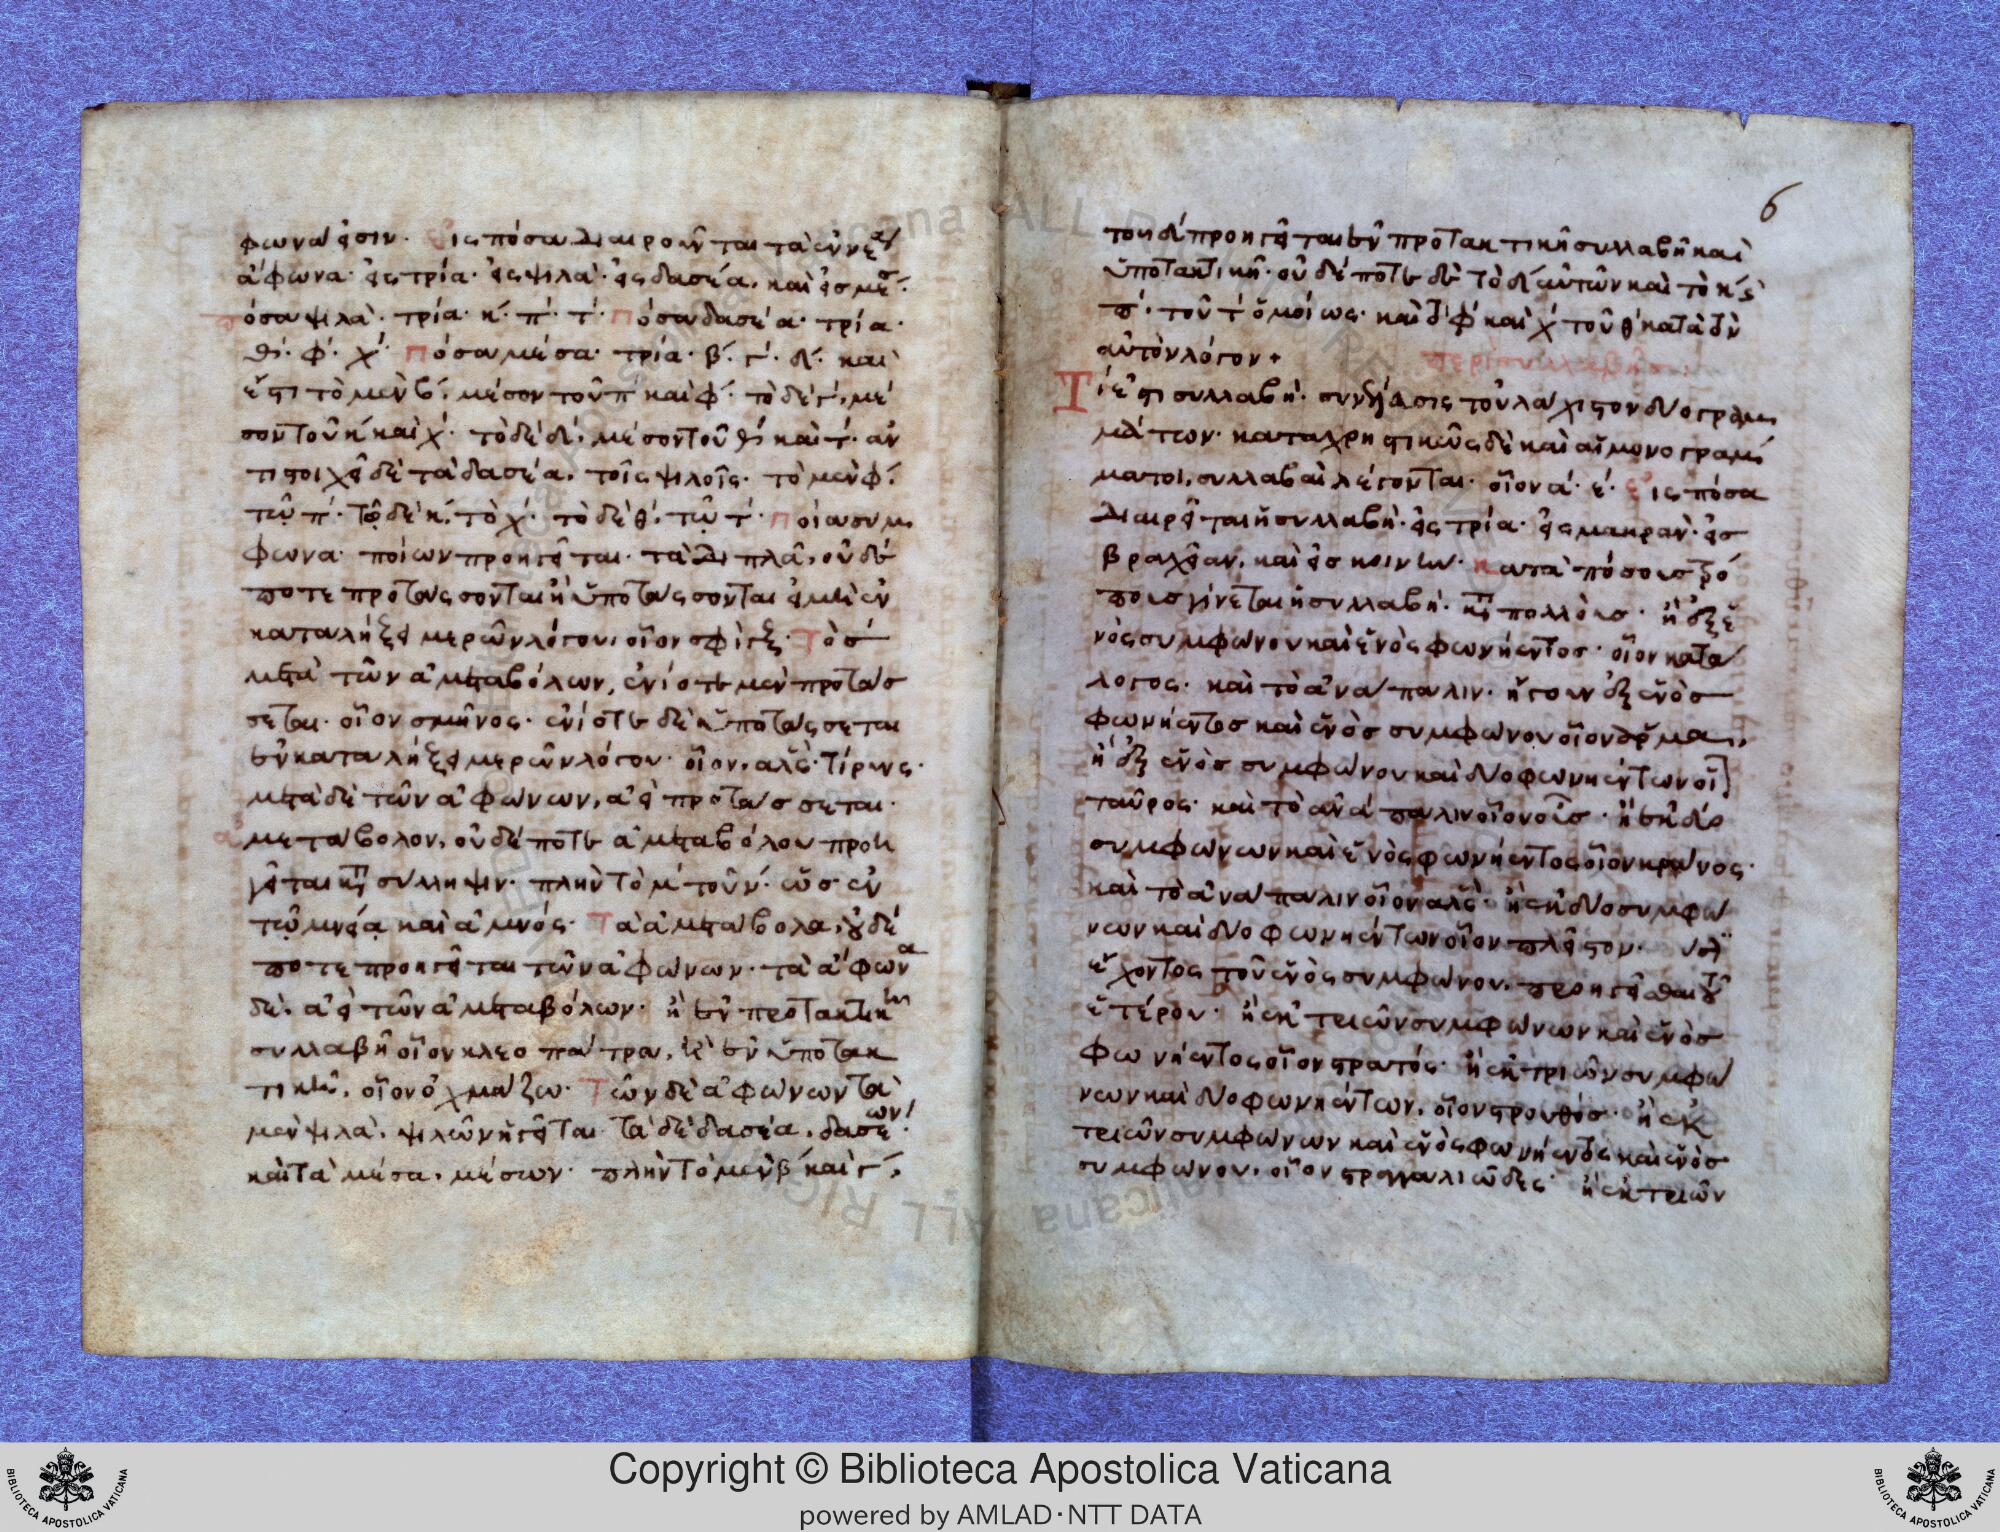 φωνά εἰσιν· Εἰς πόσα διαιροῦνται τὰ ἐννέα
ἄφωνα· εἰς τρία· εἰς ψιλὰ· εἰς δασέα, καὶ εἰς μέσ·
Πόσα ψιλὰ· τρία· κ΄· π΄· τ΄· Πόσα δασέα· τρία·
θ΄· φ΄· χ΄· Πόσα μέσα· τρία· β΄· γ΄· δ΄· καὶ
ἔστι τὸ μὲν β΄, μέσον τοῦ π΄ καὶ φ΄· τὸ δὲ γ΄, μέ
σον τοῦ κ΄ καὶ χ΄· τὸ δὲ δ΄, μέσον τοῦ θ΄ καὶ τ΄· ἀν
τιστοιχεῖ δὲ τὰ δασέα, τοῖς ψιλοῖς· τὸ μὲν φ΄
τῷ π΄· τῷ δὲ κ΄, τὸ χ΄· τὸ δὲ θ΄, τῷ τ΄· Ποῖα σύμ
φωνα· ποίων προηγεῖται· τὰ διπλᾶ, οὐδέ
ποτε προτάσσονται ἢ ὑποτάσσονται εἰ μὴ ἐν
καταλήξει μερῶν λόγου, οἷον σφίγξ· Τὸ σ΄
μετὰ τῶν ἀμεταβόλων, ἐνίοτε μὲν προτάσ
σεται· οἷον σμῆνος· ἐνίοτε δὲ καὶ ὑποτάσσεται
ἐν καταλήξει μερῶν λόγου· οἷον, ἅλς· τίρυνς·
μετὰ δὲ τῶν ἀφώνων, ἀεὶ προτάσσεται·
Ἀμετάβολον, οὐδέποτε ἀμεταβόλου προη
γεῖται κατὰ σύλληψιν· πλὴν τὸ μ΄ τοῦ ν΄· ὡς ἐν
τῷ μνεία καὶ ἀμνός· Τὰ ἀμετάβολα, οὐδέ
ποτε προηγεῖται τῶν ἀφώνων· τὰ ἄφωνα
δὲ, ἀεὶ τῶν ἀμεταβόλων· ἢ ἐν προτακτικῇ
συλλαβῇ οἷον κλεοπάτρα, ἢ ἐν ὑποτακ
τικῇ, οἷον ὀχμάζω· Τῶν δὲ ἀφώνων τὰ
μὲν ψιλὰ, ψιλῶν ἡγεῖται· τὰ δὲ δασέα, δασέων·
καὶ τὰ μέσα, μέσων· πλὴν τὸ μὲν β΄ καὶ γ΄,
6
τοῦ δ΄ προηγεῖται ἐν προτακτικῇ συλλαβῇ καὶ
ὑποτακτικῇ· οὐδέποτε δὲ τὸ δ΄ αὐτῶν καὶ τὸ κ΄ καὶ
π΄· τοῦ τ΄ ὁμοίως· καὶ τὸ φ΄ καὶ χ΄ τοῦ θ΄ κατὰ τὸν
αὐτὸν λόγον +
περὶ συλλαβῆς·
Τί ἐστι συλλαβή· συνέλευσις τοὐλάχιστον δύο γραμ
μάτων· καταχρηστικῶς δὲ καὶ αἱ μονογράμ
ματοι, συλλαβαὶ λέγονται· οἷον α΄· ε΄· Εἰς πόσα
διαιρεῖται ἡ συλλαβή· εἰς τρία· εἰς μακρὰν· εἰς
βραχεῖαν, καὶ εἰς κοινήν· Κατὰ πόσους τρό
πους γίνεται ἡ συλλαβή· κατὰ πολλούς· ἢ ἐξ ἑ
νὸς συμφώνου καὶ ἑνὸς φωνήεντος· οἷον κατὰ
λόγος· καὶ τὸ ἀνάπαλιν· ἤγουν ἐξ ἑνὸς
φωνήεντος καὶ ἑνὸς συμφώνου οἷον
ἢ ἐξ ἑνὸς συμφώνου καὶ δύο φωνηέντων οἷον
ταῦρος· καὶ τὸ ἀνάπαλιν οἷον οἷς· ἢ ἐκ δύο
συμφώνων καὶ ἑνὸς φωνήεντος οἷον κράνος·
καὶ τὸ ἀνάπαλιν οἷον ἅλς· ἢ ἐκ δύο συμφώ
νων καὶ δύο φωνηέντων οἷον πλεῖστον·
ἔχοντος τοῦ ἑνὸς συμφώνου, προηγεῖσθαι τοῦ
ἑτέρου· ἢ ἐκ τριῶν συμφώνων καὶ ἑνὸς
φωνήεντος οἷον στρατός· ἢ ἐκ τριῶν συμφώ
νων καὶ δύο φωνηέντων, οἷον στρουθός· ἢ ἐκ
τριῶν συμφώνων καὶ ἑνὸς φωνήεντος καὶ ἑνὸς
συμφώνου, οἷον στραγγαλιῶδες· ἢ ἐκ τριῶν
Copyright © Biblioteca Apostolica Vaticana
powered by AMLAD·NTT DATA
BIBLIOTECA APOSTOLICA VATICANA
BIBLIOTECA APOSTOLICA VATICANA